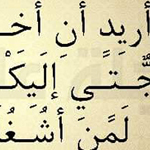 أريد أن أخـ
ـجَّتي إِليَكْـ
لَمَنَ أُشْغُـ